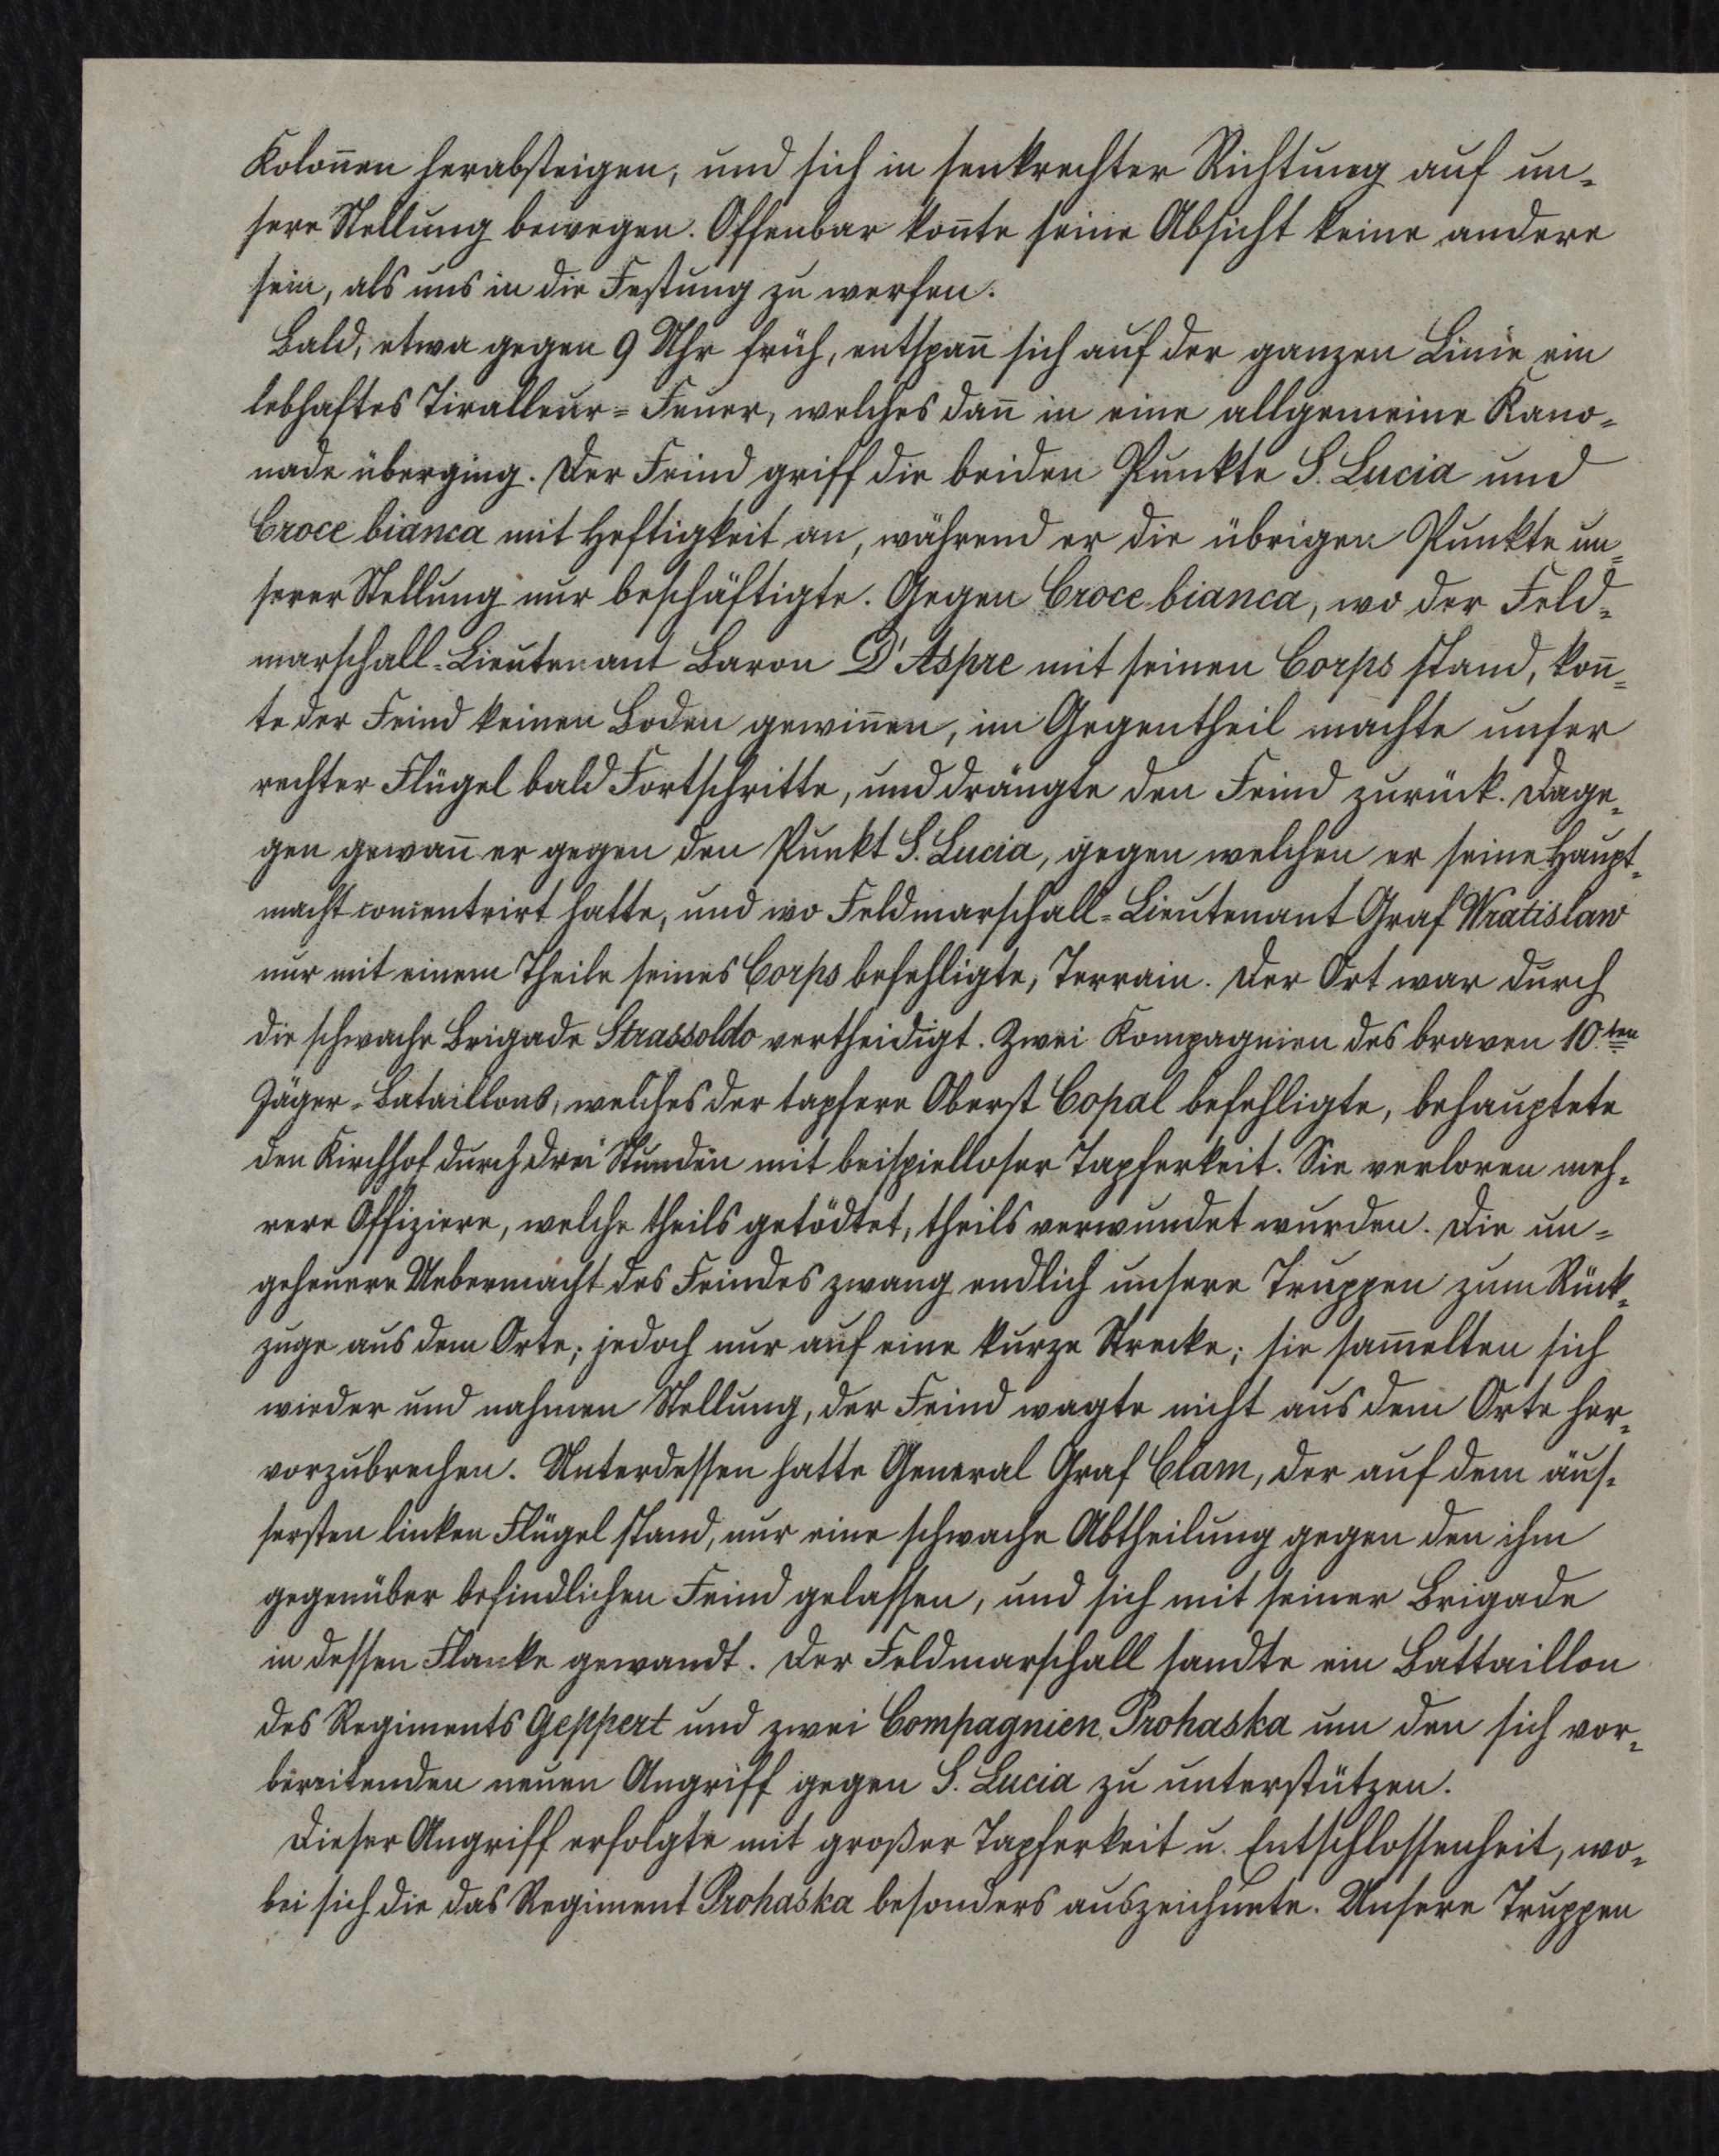 Koloñen herabsteigen, und sich in senkrechter Richtung auf un-
sere Stellung bewegen. Offenbar koñte seine Absicht keine andere
sein, als uns in die Festung zu werfen.
Bald, etwa gegen 9 Uhr früh, entspañ sich auf der ganzen Linie ein
lebhaftes Tiralleur=Feuer, welches dañ in eine allgemeine Kano=
nade überging. Der Feind griff die beiden Punkte S. Lucia und
Croce bianca mit Heftigkeit an, während er die übrigen Punkte un=
serer Stellung nur beschäftigte. Gegen Croce bianca, wo der Feld=
marschall=Lieutenant Baron D'Aspre mit seinen Corps stand, koñ=
te der Feind keinen Boden gewiñen, im Gegentheil machte unser
rechter Flügel bald Fortschritte, und drängte den Feind zurück. Dage=
gen gewañ er gegen den Punkt S. Lucia, gegen welchen er seine Haupt=
macht concentrirt hatte, und wo Feldmarschall=Lieutenant Graf Wratislaw
nur mit einem Theile seines Corps befehligte, Terrain. Der Ort war durch
die schwache Brigade Strassoldo vertheidigt. Zwei Kompagnien des braven 10.ten
Jäger=Bataillons, welches der tapfere Oberst Copal befehligte, behauptete
den Kirchhof durch drei Stunden mit beispielloser Tapferkeit. Sie verloren meh=
rere Offiziere, welche theils getödtet, theils verwundet wurden. Die un=
geheuere Uebermacht des Feindes zwang endlich unsere Truppen zum Rück=
zuge aus dem Orte; jedoch nur auf eine kurze Strecke; sie sam̃elten sich
wieder und nahmen Stellung, der Feind wagte nicht aus dem Orte her=
vorzubrechen. Unterdessen hatte General Graf Clam, der auf dem äus=
sersten linken Flügel stand, nur eine schwache Abtheilung gegen den ihm
gegenüber befindlichen Feind gelassen, und sich mit seiner Brigade
in dessen Flanke gewandt. Der Feldmarschall sandte ein Battaillon
des Regiments Geppert und zwei Compagnien Prohaska um den sich vor=
bereitenden neuen Angriff gegen S. Lucia zu unterstützen.
Dieser Angriff erfolgte mit großer Tapferkeit u. Entschlossenheit, wo=
bei sich die das Regiment Prohaska besonders auszeichnete. Unsere Truppen